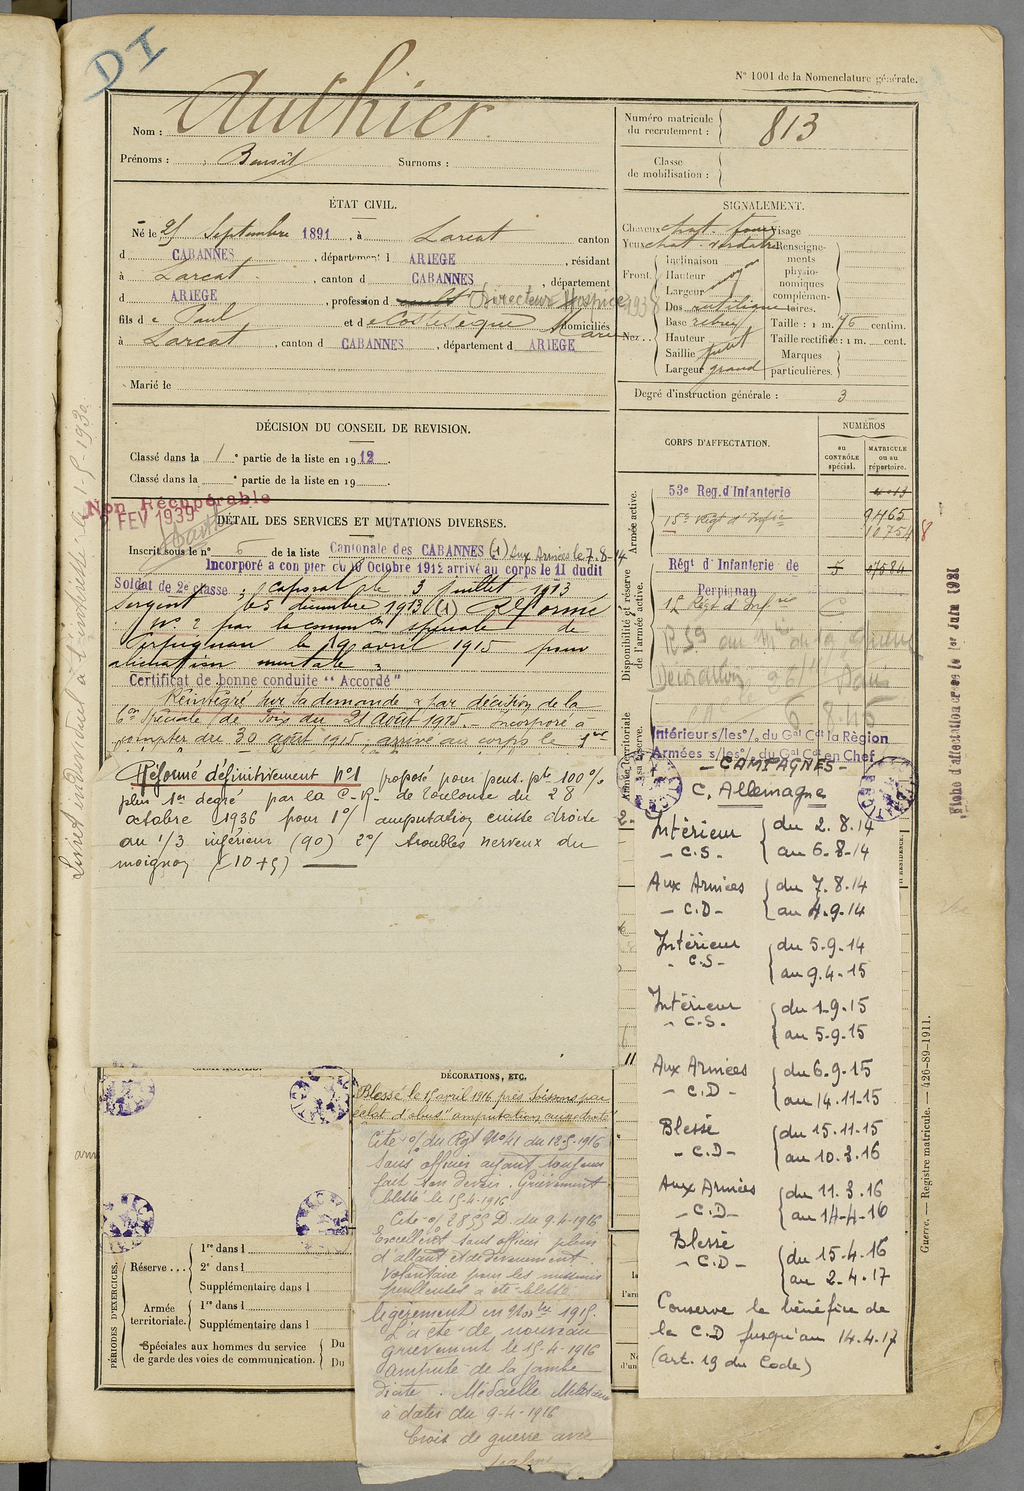 DI
N° 1001 de la Nomenclature générale.
Nom : Authier
Prénoms : Benoît Surnoms :
Numéro matricule du recrutement : 813
Classe de mobilisation :
ÉTAT CIVIL.
Né le 25 Septembre 1891, à Larcat canton
d CABANNES, département d ARIEGE, résidant
à Larcat, canton d CABANNES, département
d ARIEGE, profession d Directeur Hospice 1938
fils de Paul et de Costesèque Marie domiciliés
à Larcat, canton d CABANNES, département d ARIEGE
Marié le
SIGNALEMENT.
Cheveux chat. foncé Visage
Yeux chat. verdâtre Renseignements physionomiques complémentaires.
Front. Inclinaison
Hauteur moyen
Largeur
Nez.. Dos rectiligne
Base relevé
Hauteur
Saillie petit
Largeur grand
Taille : 1 m. 76 centim.
Taille rectifiée : 1 m. cent.
Marques particulières.
Degré d'instruction générale : 3
DÉCISION DU CONSEIL DE REVISION.
Classé dans la 1° partie de la liste en 1912.
Classé dans la ° partie de la liste en 19
CORPS D'AFFECTATION.
NUMÉROS
au CONTRÔLE spécial.
MATRICULE ou au répertoire.
Armée active.
53e Reg. d'Infanterie
15e Regt d'Infie
9465
10754
8
Disponibilité et réserve de l'armée active.
Régt d'Infanterie de Perpignan
5 07584
12 Régt d'Infrie
Armée territoriale
sa réserve.
Intérieur s/les o/. du Gal Ct la Région
Armées s/les o/. du Gal Ct en Chef
Non Récupérable
2 FEV 1939
DÉTAIL DES SERVICES ET MUTATIONS DIVERSES.
Inscrit sous le n° 5 de la liste Cantonale des CABANNES (-1) Aux Armées le 7-8-14
Incorporé à compter du 10 Octobre 1912 arrivé au corps le 11 dudit
Soldat de 2e classe ; caporal le 3 juillet 1913
Sergent le 5 décembre 1913 (1) Réformé
N° 2 par la common spéciale de
Perpignan le 19 avril 1915 pour
aliénation mentale.
Certificat de bonne conduite "Accordé"
Réintégré sur sa demande par décision de la
Con Spéciale de Foix du 21 Août 1915. Incorporé à
compter du 30 août 1915, arrivé au corps le 1er
Réformé définitivement N°1 proposé pour pens. pte 100%
plus 1er degré par la C-R- de Toulouse du 28
octobre 1936 pour 1°/ amputation cuisse droite
au 1/3 inférieur (90) 2°/ troubles nerveux du
moignon (10+5)
Livret individuel à l'intéressé le 1-5-1930.
- CAMPAGNES -
C. Allemagne
Intérieur - C.S. du 2.8.14 au 6-8-14
Aux Armées - C.D- du 7.8.14 au 4.9.14
Intérieur - C.S- du 5-9-14 au 9.4-15
Intérieur - C.S. du 1-9.15 au 5-9.15
Aux Armées - C.D- du 6.9.15 au 14-11-15
Blessé - C.D- du 15-11-15 au 10.3.16
Aux Armées - C.D- du 11.3.16 au 14-4-16
Blessé - C.D- du 15-4.16 au 2-4.17
Conserve le bénéfice de
la C.D jusqu'au 14.4.17
(art. 19 du Code)
Fiche d'affectation créée le 1er Juin 1921
Guerre. — Registre matricule. — 426-89-1911.
CAMPAGNES.
DÉCORATIONS, ETC.
Blessé le 15 avril 1916 près Soissons par
éclat d'obus "amputation cuisse droite"
Cité o/ du Rgt N° 41 du 18-5-1916
Sous officier ayant toujours
fait son devoir. Grièvement
blessé le 15-4-1916
Cité o/ 2855 D. du 9.4-1916
Excellent sous officier plein
d'allant et de dévouement.
Volontaire pour les missions
périlleuses a été blessé
légèrement en Novbre 1915.
L'a été de nouveau
grièvement le 15-4-1916
amputé de la jambe
droite. Médaille Militaire
à dater du 9-4-1916
Croix de guerre avec
palme
PÉRIODES D'EXERCICES.
Réserve ... 1re dans l
2e dans l
Supplémentaire dans l
Armée territoriale. 1re dans l
Supplémentaire dans l
Spéciales aux hommes du service de garde des voies de communication. Du
Du